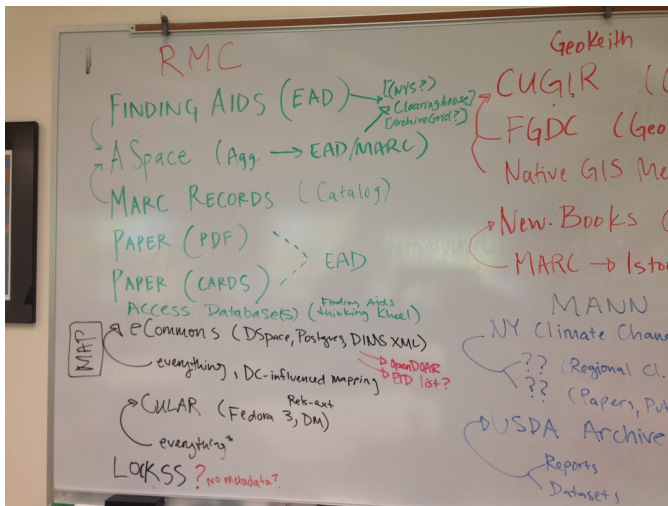 RMC
FINDING AIDS (EAD)
[(NYS?)
Clearinghouse]
[ArchiveGrid?]
ASpace (Agg. → EAD/MARC)
MARC RECORDS (Catalog)
PAPER (PDF)
EAD
PAPER (CARDS)
ACCESS DATABASE(S) (Finding Aids
thinking Kheel)
MAP
eCommons (DSpace, Postgres, DIMS XML)
everything, DC-influenced mapping
OpenDOAR
ETD list?
CULAR (Fedora 3, DM)
Rels-ext
everything*
LOCKSS ? No metadata?
GeoKeith
CUGIR (
FGDC (Geo
Native GIS Me
New Books (
MARC → Isto
MANN
NY Climate Chan
?? (Regional Cl.
?? (Papers, Pu
USDA Archive
Reports
Datasets